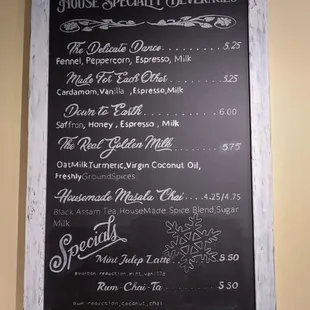 House Specialty Beverages
The Delicate Dance ......... 5.25
Fennel, Peppercorn, Espresso, Milk
Made For Each Other ......... 5.25
Cardamom, Vanilla , Espresso, Milk
Down to Earth ............ 6.00
Saffron, Honey , Espresso , Milk
The Real Golden Milk ....... 5.75
OatMilk, Turmeric, Virgin Coconut Oil,
Freshly Ground Spices
Housemade Masala Chai ....4.25/4.75
Black Assam Tea, HouseMade Spice Blend, Sugar
Milk
Specials
Mint Julep Latte 5.50
bourbon reduction, mint, vanilla
Rum-Chai-Ta 5.50
rum reduction, coconut, chai